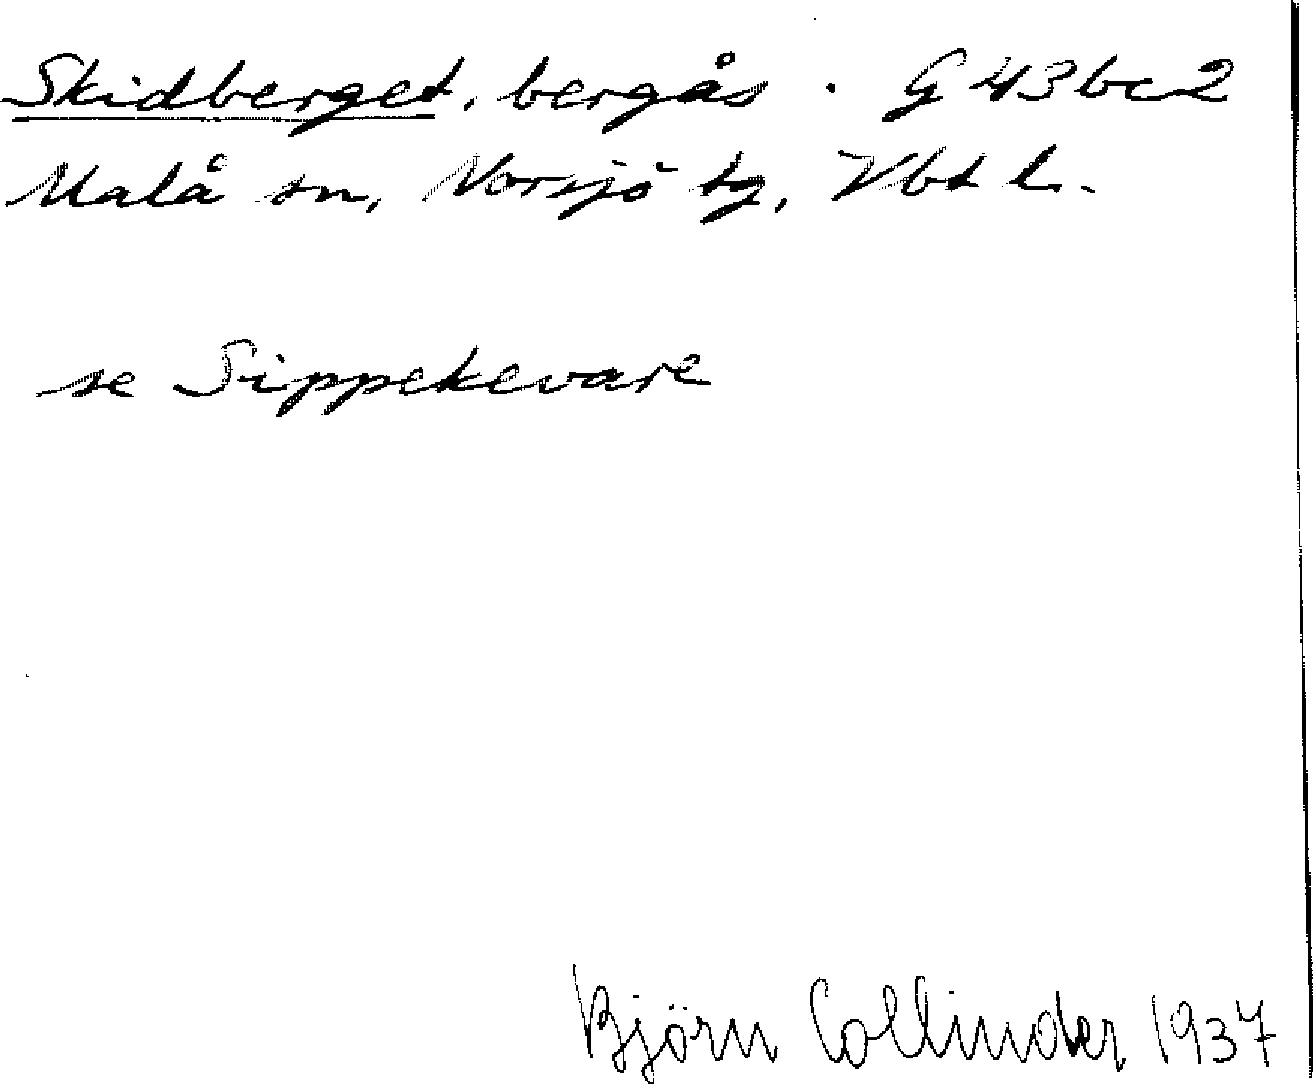 Skidberget, bergås. G 43bc2
Malå sn, Norsjö tg, Vbt l.
se Sippekevare
Björn Collinder 1937